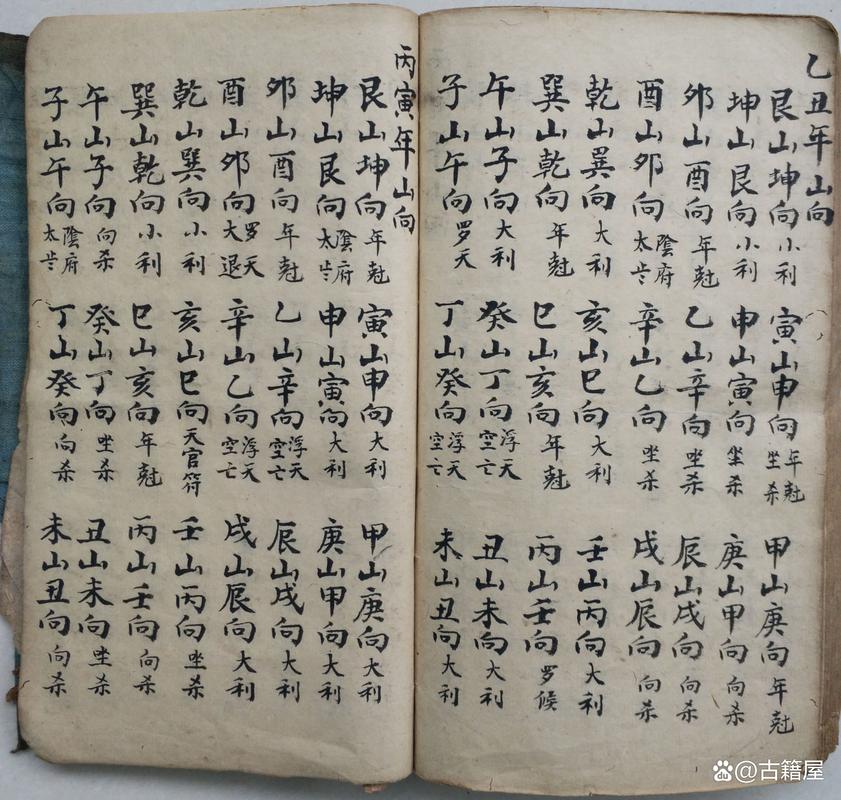 乙丑年山向
艮山坤向小利 寅山申向年尅坐杀 甲山庚向年尅
坤山艮向小利 申山寅向坐杀 庚山甲向向杀
夘山酉向年尅 乙山辛向坐杀 辰山戌向向杀
酉山夘向陰府太岁 辛山乙向坐杀 戌山辰向向杀
乾山巽向大利 亥山巳向大利 壬山丙向大利
巽山乾向年尅 巳山亥向年尅 丙山壬向罗候
午山子向大利 癸山丁向浮天空亡 丑山未向大利
子山午向罗天 丁山癸向浮天空亡 未山丑向大利
丙寅年山向
艮山坤向年尅 寅山申向大利 甲山庚向大利
坤山艮向陰府太岁 申山寅向大利 庚山甲向大利
夘山酉向年尅 乙山辛向浮天空亡 辰山戌向大利
酉山夘向罗天大退 辛山乙向浮天空亡 戌山辰向大利
乾山巽向小利 亥山巳向天官符 壬山丙向坐杀
巽山乾向小利 巳山亥向年尅 丙山壬向向杀
午山子向向杀 癸山丁向坐杀 丑山未向坐杀
子山午向陰府太岁 丁山癸向向杀 未山丑向向杀
du@古籍屋